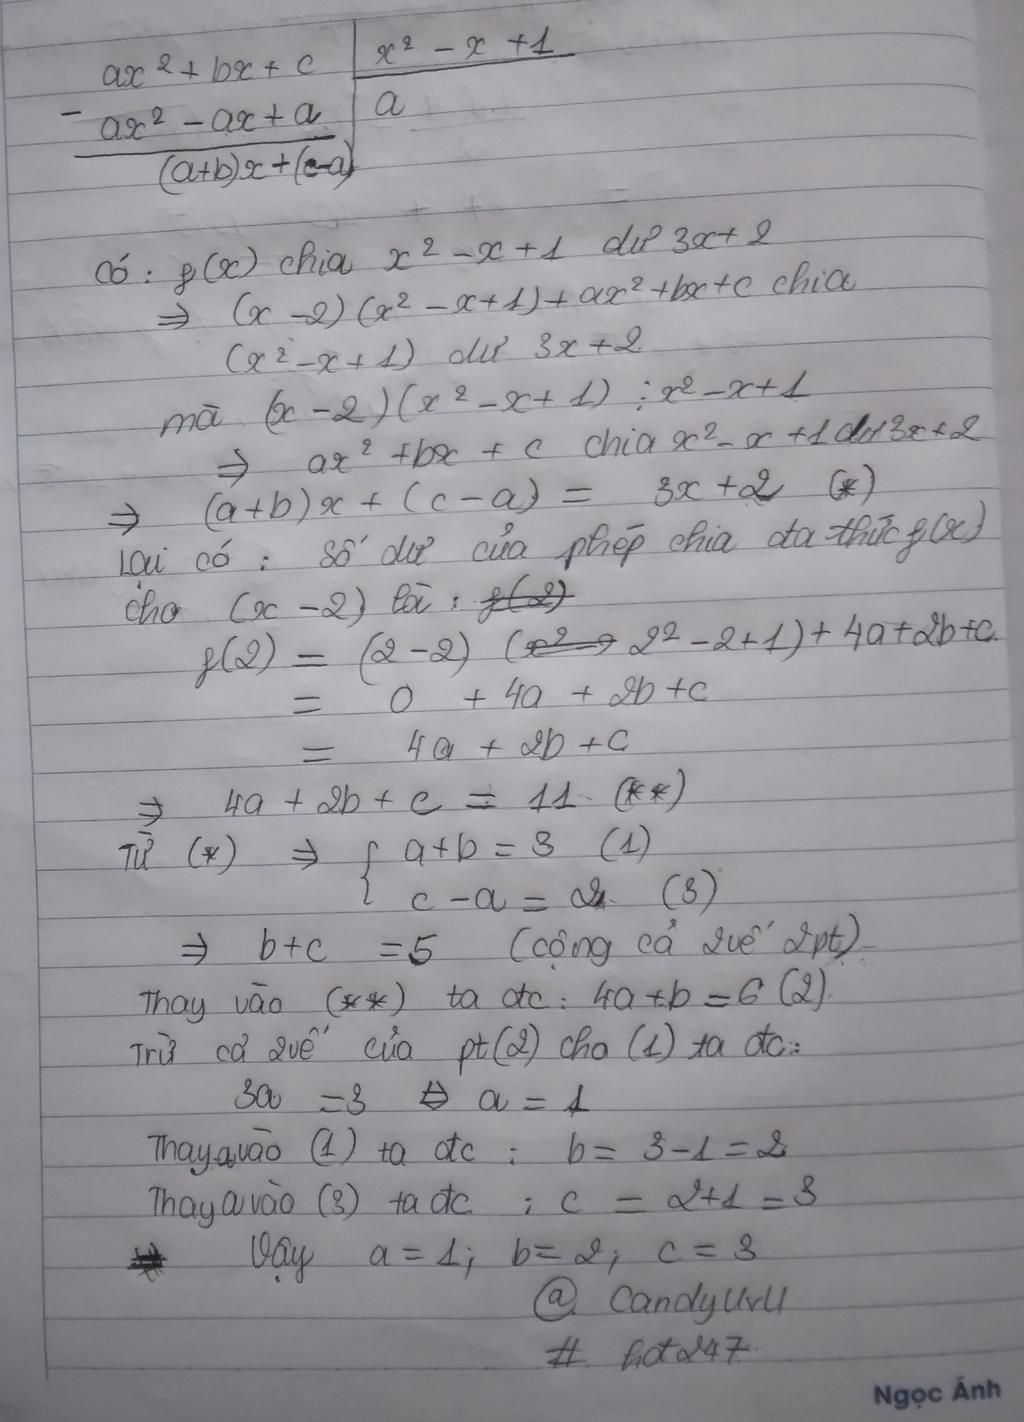 ax² + bx + c | x² - x + 1
- ax² - ax + a | a
(a+b)x + (c-a)
Có : f(x) chia x² - x + 1 dư 3x + 2
⇒ (x - 2)(x² - x + 1) + ax² + bx + c chia
(x² - x + 1) dư 3x + 2
mà (x - 2)(x² - x + 1) ⋮ x² - x + 1
⇒ ax² + bx + c chia x² - x + 1 dư 3x + 2
⇒ (a+b)x + (c - a) = 3x + 2 (*)
Lại có : Số dư của phép chia đa thức f(x)
cho (x - 2) là : f(2)
f(2) = (2 - 2) (x² - 2² - 2 + 1) + 4a + 2b + c
= 0 + 4a + 2b + c
= 4a + 2b + c
⇒ 4a + 2b + c = 11. (**)
Từ (*) ⇒ { a + b = 3 (1)
c - a = 2. (3)
⇒ b + c = 5 (cộng cả 2 vế 2pt)
Thay vào (**) ta đc : 4a + b = 6 (2).
Trừ cả 2 vế của pt (2) cho (1) ta đc :
3a = 3 ⇔ a = 1
Thay a vào (1) ta đc : b = 3 - 1 = 2
Thay a vào (3) ta đc : c = 2 + 1 = 3
Vậy a = 1; b = 2; c = 3
@ CandyUvU
# hot247.
Ngọc Ánh